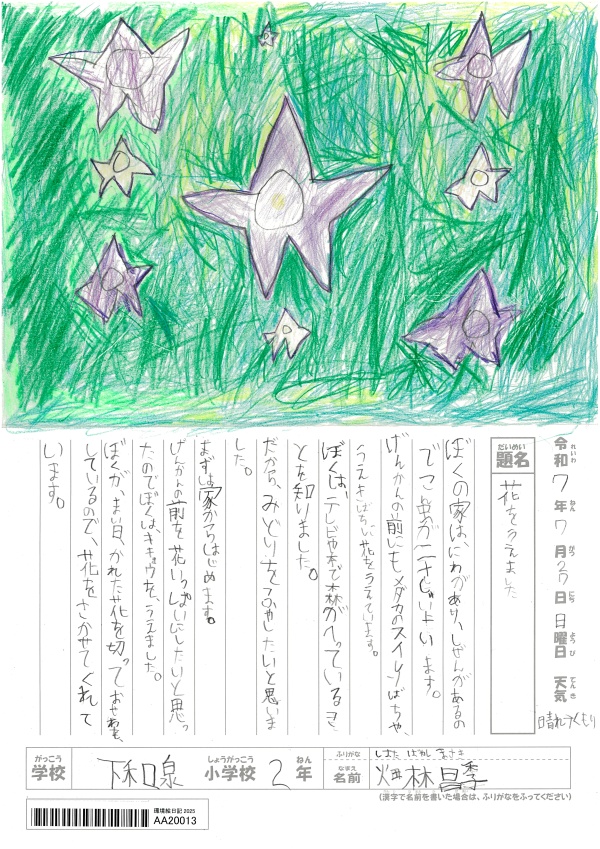 令和7年7月27日日曜日 天気 晴れ→くもり
れいわ ねん がつ にち ようび てんき
だいめい
題名 花をうえました
ぼくの家は、にわがあり、しぜんがあるの
でこん虫が二十
げんかんの前にも、メダカのスイレンばちや、
うえきばちに花をうえています。
ぼくは、テレビや本で森がへっているこ
とを知りました。
だから、みどりをふやしたいと思いま
した。
まずは家からはじめます。
げんかんの前を花いっぱいにしたいと思っ
たのでぼくは、キキョウを、うえました。
ぼくが、まい日、かれた花を切っておせわも、
しているので、花をさかせてくれて
います。
がっこう しょうがっこう ねん
学校 下和泉 小学校 2 年
ふりがな ばやし まさき
なまえ
名前 林昌季
(漢字で名前を書いた場合は、ふりがなをふってください)
環境絵日記 2025
AA20013